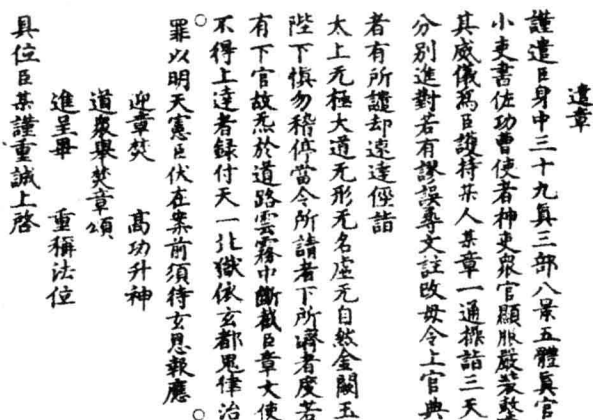 遣章
謹遣臣身中三十九真三部八景五體真官
小吏書佐功曹使者神吏衆官顯服嚴裝整
其威儀爲臣護持某人某章一通操詣三天
分別進對若有謬誤尋文註改毋令上官典
者有所譴却遠達徑詣
太上无極大道无形无名虛无自然金闕玉
陛下慎勿稽停當令所請者下所濟者度若
有下官故炁於道路雲霧中斷截臣章文使
不得上達者録付天一北獄依玄都鬼律治
罪以明天憲臣伏在案前須待玄恩報應
迎章焚　高功升神
道衆舉焚章頌
進呈畢　重稱法位
具位臣某謹重誠上啓